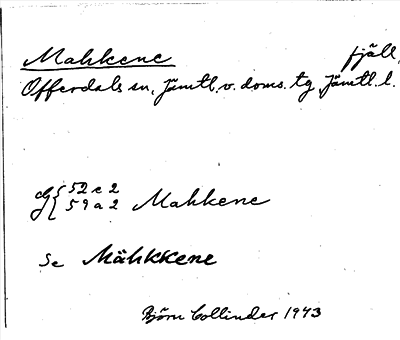 Mahkene fjäll,
Offerdals sn, Jämtl. v. doms. tg, Jämtl. l.
52 c 2
59 a 2 Mahkene
Se Mähkkene
Björn Collinder 1943